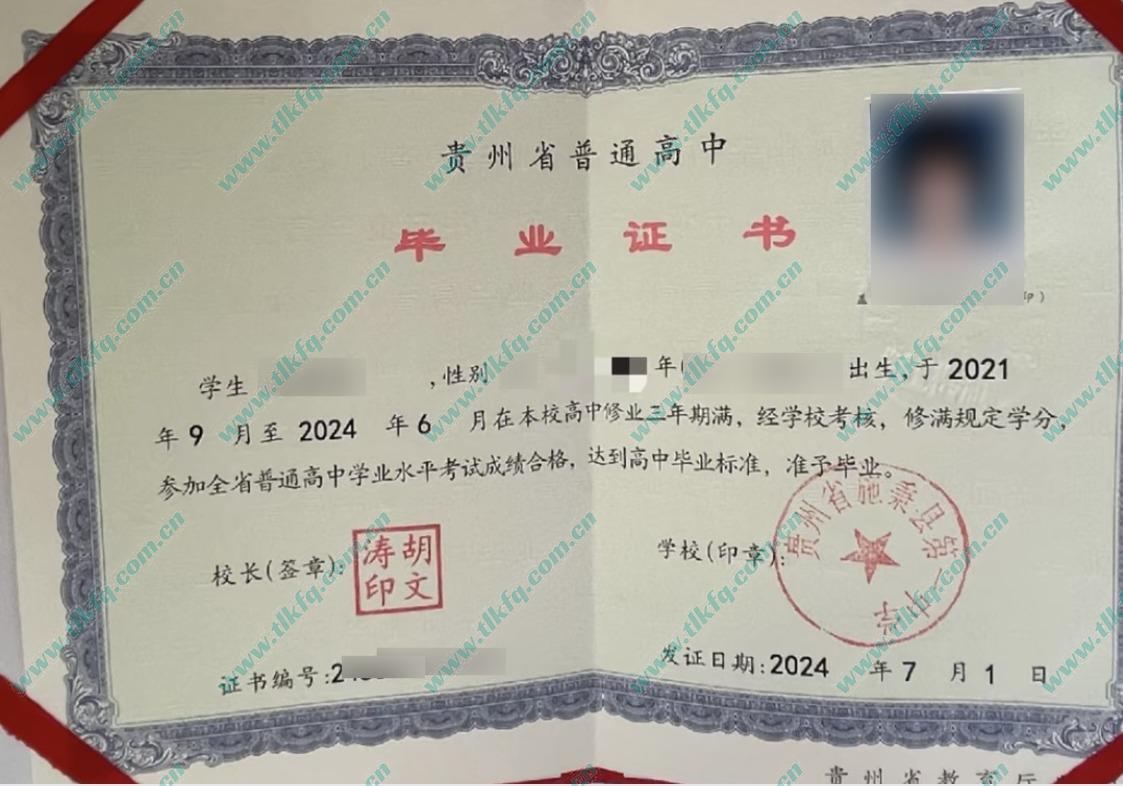 贵州省普通高中
毕业证书
印）
学生 ，性别 年 出生，于 2021
年 9 月至 2024 年 6 月在本校高中修业三年期满，经学校考核，修满规定学分，
参加全省普通高中学业水平考试成绩合格，达到高中毕业标准，准予毕业。
校长(签章)：
胡文涛印
学校(印章)：
贵州省施秉县第一中学
证书编号:2
发证日期:2024 年 7 月 1 日
贵州省教育厅
www.tlkfq.com.cn